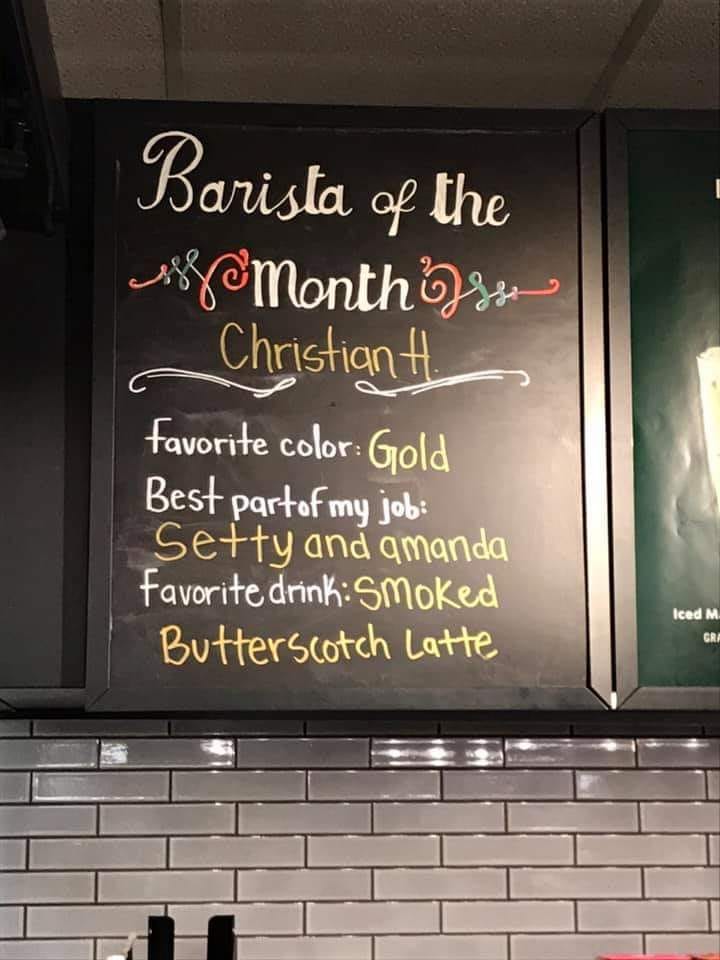 Barista of the
Month
Christian H.
favorite color: Gold
Best part of my job:
Setty and amanda
favorite drink: Smoked
Butterscotch Latte
Iced M
GRA